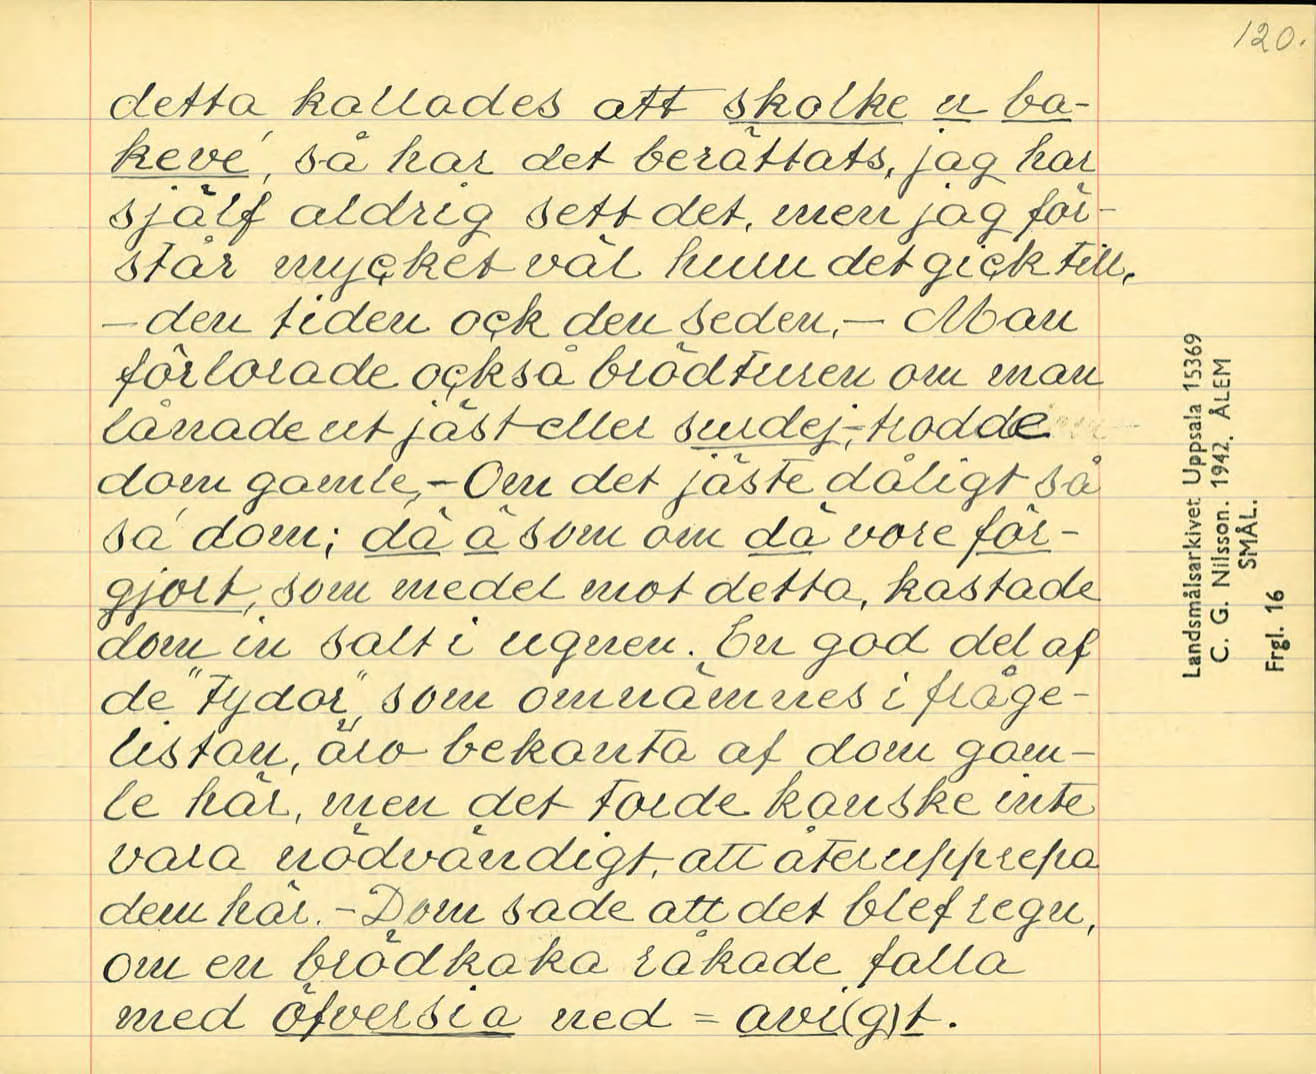 120.
detta kallades att skolke u ba-
keve', så har det berättats, jag har
själf aldrig sett det, men jag för-
står mycket väl huru det gick till,
– den tiden ock den seden, – Man
förlorade också brödturen om man
lånade ut jäst eller surdej, – trodde
dom gamle, – Om det jäste dåligt så
sa' dom; dä ä som om dä vore för-
gjort, som medel mot detta, kastade
dom in salt i ugnen. En god del af
de "tydor", som omnämnes i fråge-
listan, äro bekanta af dom gam-
le här, men det torde kanske inte
vara nödvändigt, att återupprepa
dem här. – Dom sade att det blef regn,
om en brödkaka råkade falla
med öfversia ned = avi(g)t.
Landsmålsarkivet Uppsala 15369
C. G. Nilsson. 1942. ÅLEM
SMÅL.
Frgl. 16